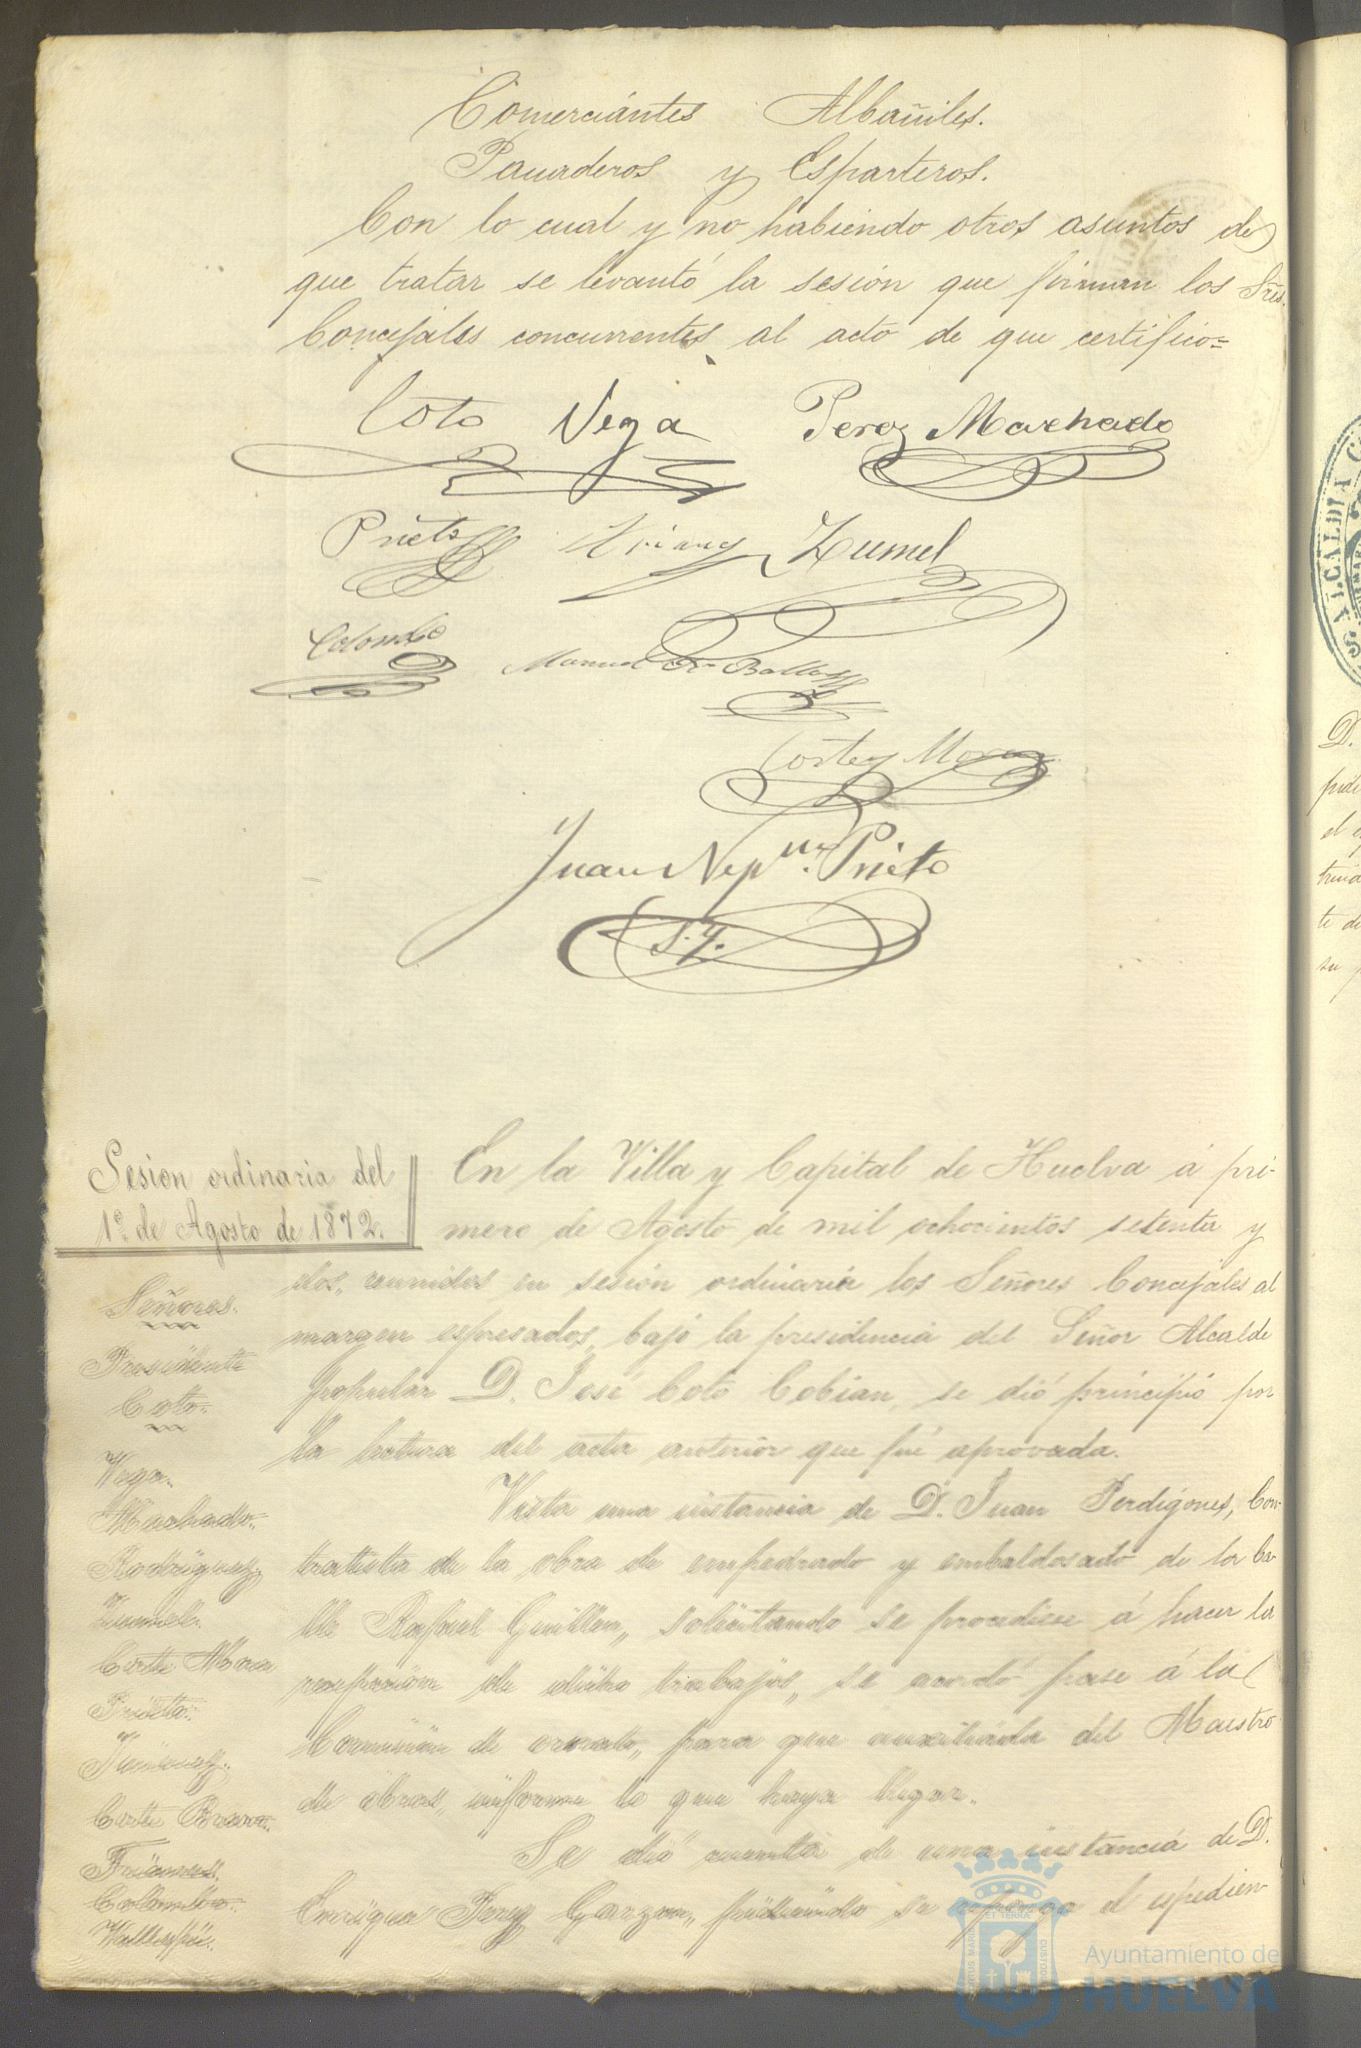 Comerciántes Albañiles.
Panaderos y Esparteros.
Con lo cual y no habiendo otros asuntos de
que tratar se levantó la sesión que firman los Sres.
Concejales concurrentes al acto de que certifico=
Coto Vega Perez Machado
Prieto Zumel
Colombo Manuel
Cortes Mora
Juan Nepno. Prieto
S.I.
Sesion ordinaria del
1º de Agosto de 1872.
Señores.
Presidente
Coto.
Vega.
Machado.
Rodriguez
Zumel.
Corte Mora
Prieto.
Jimenez.
Corte Bravo.
Colombo.
En la Villa y Capital de Huelva á pri-
mero de Agosto de mil ochocientos setenta y
dos, reunidos en sesión ordinaria los Señores Concejales al
margen espresados, bajo la presidencia del Señor Alcalde
popular D. José Coto Cobian, se dió principio por
la lectura del acta anterior que fué aprovada.
Vista una instancia de D. Juan Perdigones, Con-
tratista de la obra de empedrado y embaldosado de la Ca-
lle Rafael Guillen, solicitando se procediese á hacer la
recepcion de dichos trabajos, se acordó pase á la
Comision de ornato, para que auxiliada del Maestro
de obras, informe lo que haya lugar.
Se dió cuenta de una instancia de D.
Enrique Perez Garzon, pidiendo se espedien
D.
pide
el
te de
su
S. ALCALDIA
ET TERRA
PORTUS MARIS
CUSTODIA
Ayuntamiento de
HUELVA